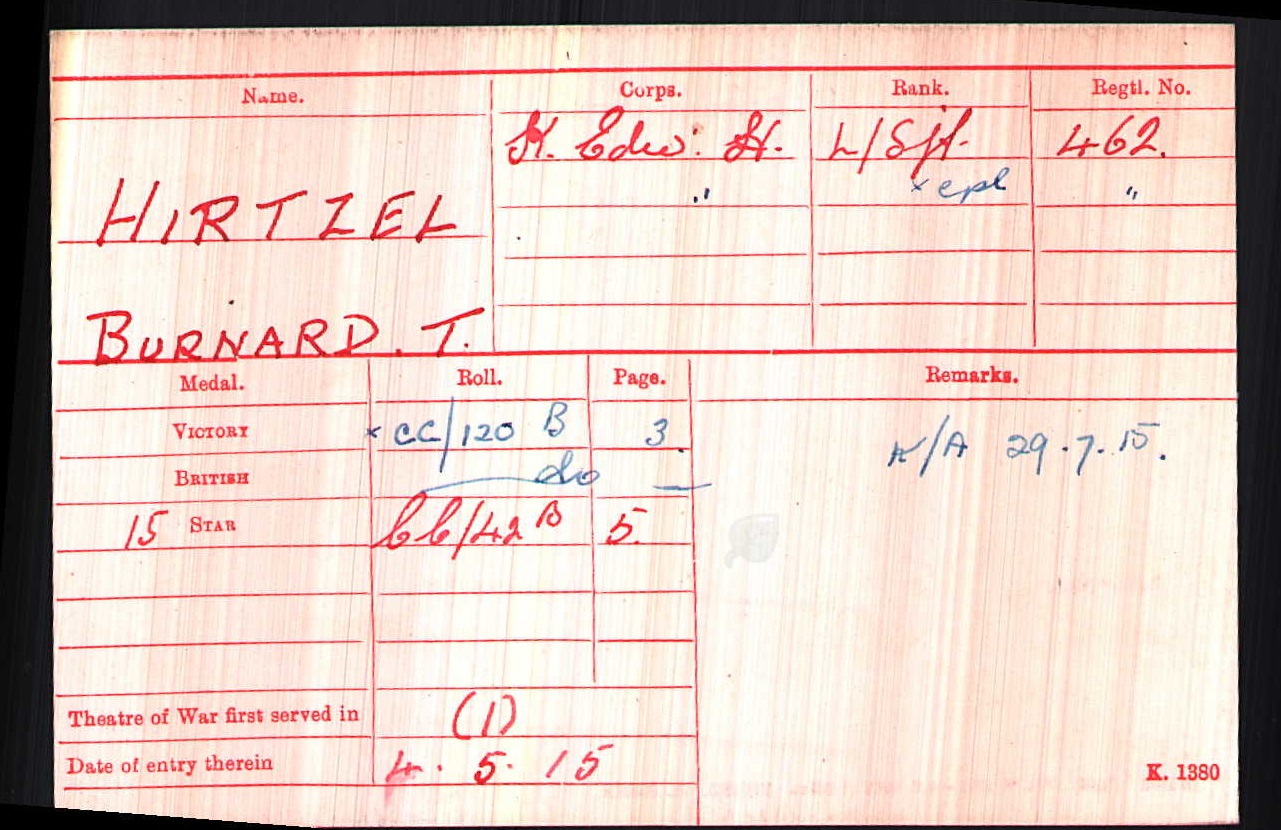 Name. Corps. Rank. Regtl. No.
K. Edw: H. L/Sjt. 462.
" x cpl "
HIRTZEL
BURNARD. T.
Medal. Roll. Page. Remarks.
VICTORY x CC/120 B 3 K/A 29.7.15.
BRITISH do
15 STAR CC/42 B 5.
Theatre of War first served in (1)
Date of entry therein 4. 5. 15
K. 1380